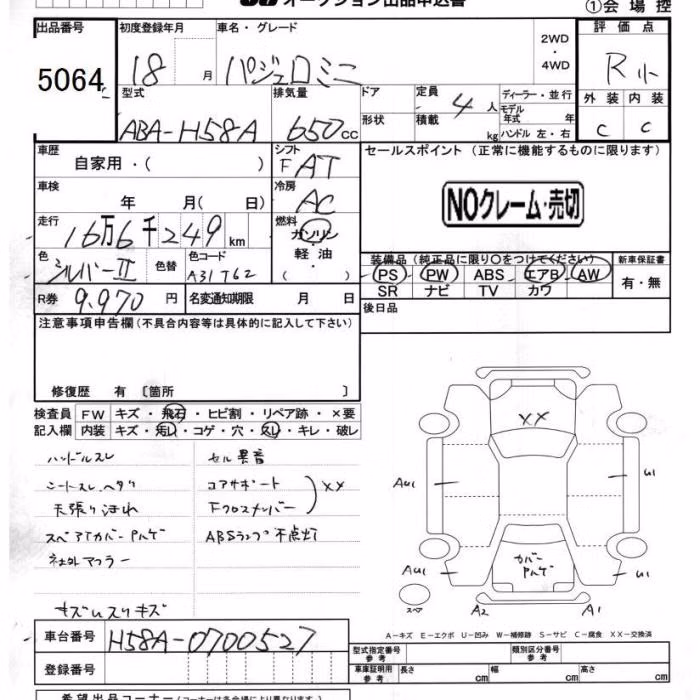 オークション出品申込書
①会場控
出品番号
5064
初度登録年月
18 月
車名・グレード
パジェロミニ
2WD
・
4WD
評価点
R
外装 内装
C C
型式
ABA-H58A
排気量
650cc
ドア
形状
定員
4人
積載
kg
ディーラー・並行
モデル
年式 年
ハンドル 左・右
車歴
自家用・( )
シフト
F AT
車検
年 月( 日)
冷房
AC
走行
16万6千249km
燃料
ガソリン
軽油
( )
色
シルバーII
色替
色コード
A31 T62
R券
9,970円
名変通知期限 月 日
セールスポイント (正常に機能するものに限ります)
NOクレーム・売切
装備品 (純正品に限り○をつけてください)
PS PW ABS エアB AW
SR ナビ TV カワ
新車保証書
有・無
後日品
注意事項申告欄(不具合内容等は具体的に記入して下さい)
修復歴 有 〔箇所 〕
検査員
記入欄
FW キズ・飛石・ヒビ割・リペア跡・×要
内装 キズ・汚レ・コゲ・穴・スレ・キレ・破レ
ハンドルスレ
シートスレ、ヘタリ
天張りほれ
スペアTカバーPハゲ
社外マフラー
キズ ハスリキズ
セル異音
コアサポート
Fクロスメンバー
XX
ABSランプ不点灯
XX
AU1
U1
カバー
Pハゲ
AU1
U1
スペア
A2
A1
A－キズ E－エクボ U－凹み W－補修跡 S－サビ C－腐食 XX－交換済
車台番号
H58A-0700527
登録番号
型式指定番号
参考
類別区分番号
参考
車庫証明用
参考
長さ cm
幅 cm
高さ cm
希望出品コーナー(コーナーは各会場により異なります。)